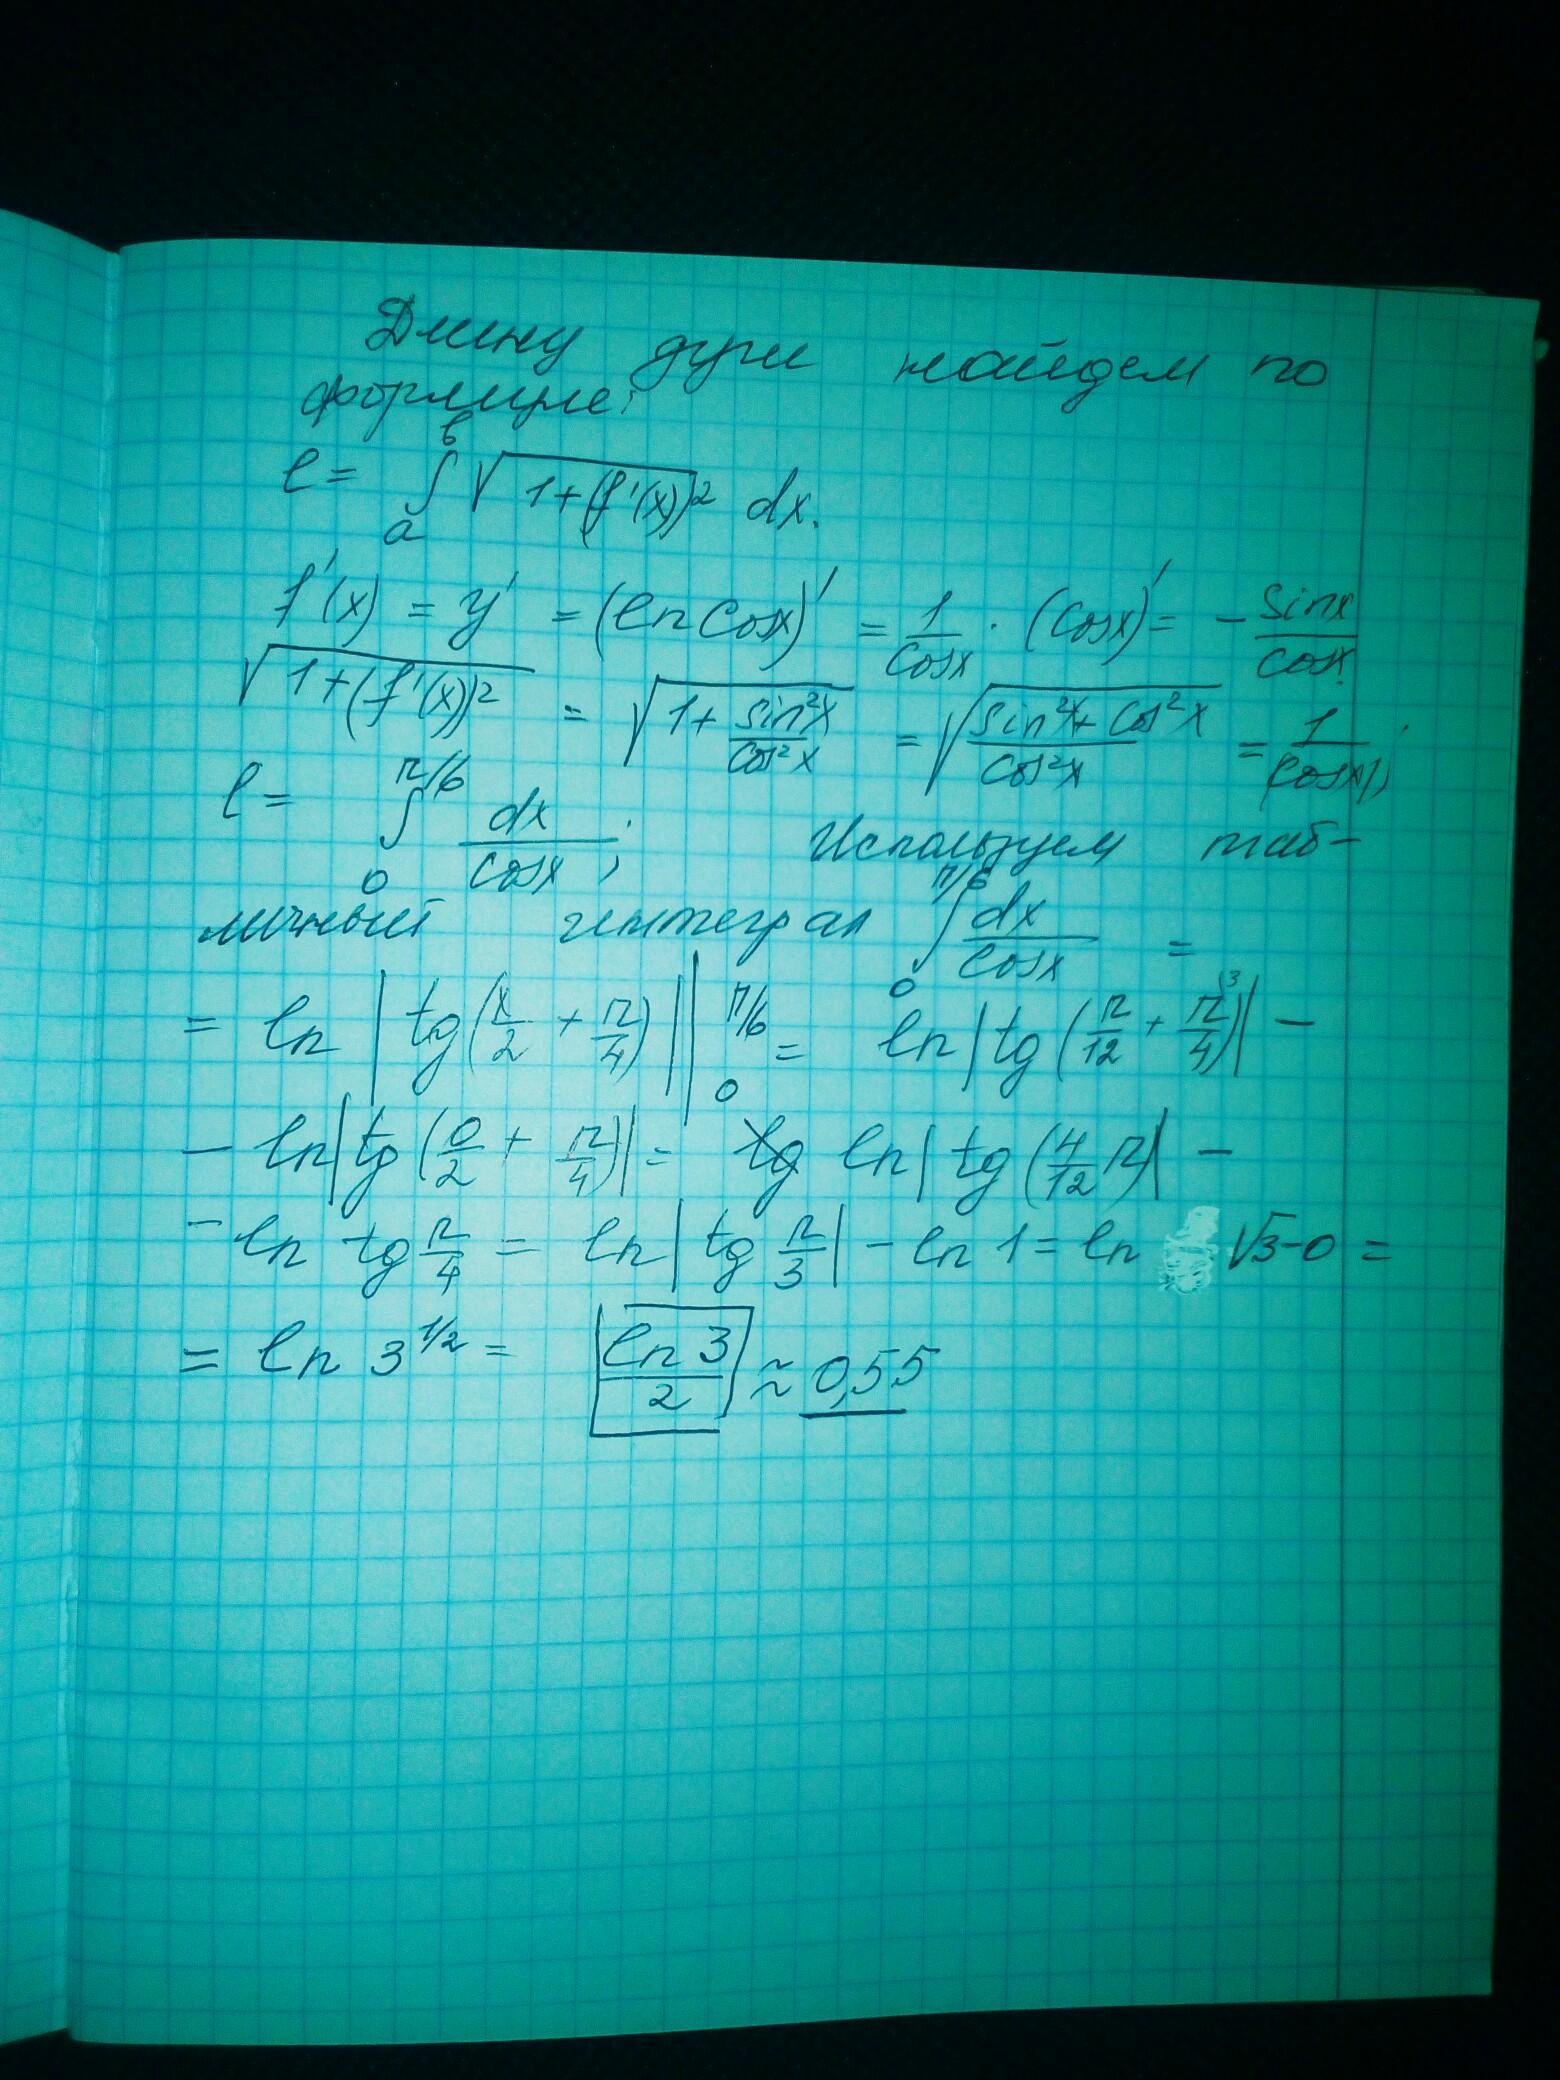 Длину дуги найдем по
формуле:
l = ∫ₐᵇ √(1+(f'(x))² dx.
f'(x) = y' = (ln cosx)' = 1/cosx · (cosx)' = - sinx/cosx.
√(1+(f'(x))²) = √(1+ sin²x/cos²x) = √((sin²x+cos²x)/cos²x) = 1/|cosx|;
l = ∫₀^(π/6) dx/cosx; Используем таб-
личный интеграл ∫₀^(π/6) dx/cosx =
= ln |tg(x/2 + π/4)| |₀^(π/6) = ln|tg(π/12 + π/4 ⁽³⁾)| -
- ln|tg(0/2 + π/4)| = ln|tg(4/12 π)| -
- ln tg π/4 = ln|tg π/3| - ln 1 = ln √3 - 0 =
= ln 3^(1/2) = ln 3/2 ≈ 0,55